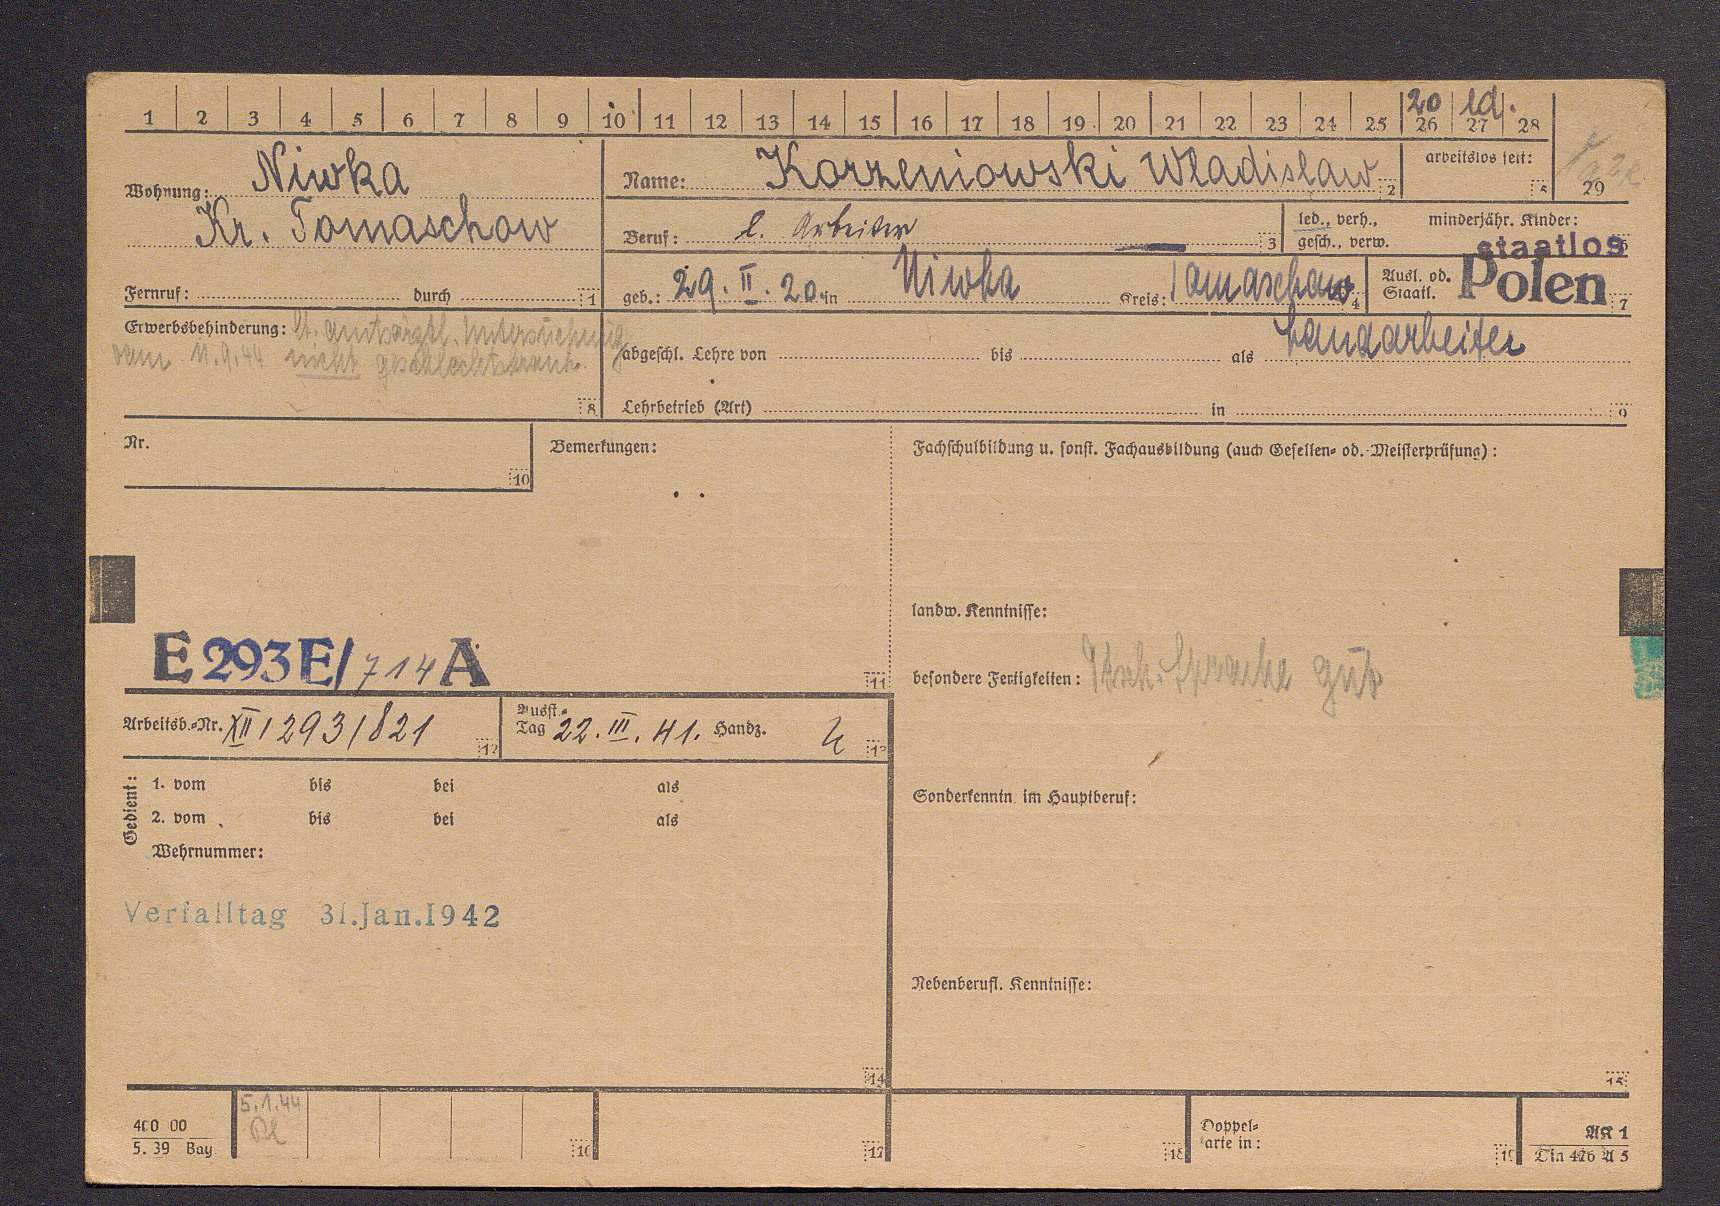 1 2 3 4 5 6 7 8 9 10 11 12 13 14 15 16 17 18 19 20 21 22 23 24 25 26 27 28
20 ld.
Wohnung: Niwka
Kr. Tomaschow
Fernruf: durch 1
Name: Korzeniowski Wladislaw 2
arbeitslos seit: 5
29
Beruf: l. Arbeiter 3
led., verh., minderjähr. Kinder:
gesch., verw. 6
staatlos
geb.: 29. II. 20 in Niwka Kreis: Tomaschow 4
Ausl. od.
Staatl. Polen 7
Erwerbsbehinderung: lt. amtsärztl. Untersuchung
vom 11.9.44 nicht geschlechtskrank.
8
abgeschl. Lehre von bis als Landarbeiter
Lehrbetrieb (Art) in 9
Nr.
10
Bemerkungen:
E 293 E/ 714 A
11
Fachschulbildung u. sonst. Fachausbildung (auch Gesellen- od. Meisterprüfung) :
landw. Kenntnisse:
besondere Fertigkeiten: Dtsch. Sprache gut
Sonderkenntn. im Hauptberuf:
Nebenberufl. Kenntnisse:
15
Arbeitsb.-Nr. XII/293/821 12
Ausst.-
Tag 22. III. 41. Handz. 13
Gedient:
1. vom bis bei als
2. vom bis bei als
Wehrnummer:
Verfalltag 31.Jan.1942
14
400 00
5. 39 Bay
5.1.44
16
17
18
Doppel-
arte in: 19
AK 1
Din 476 A 5